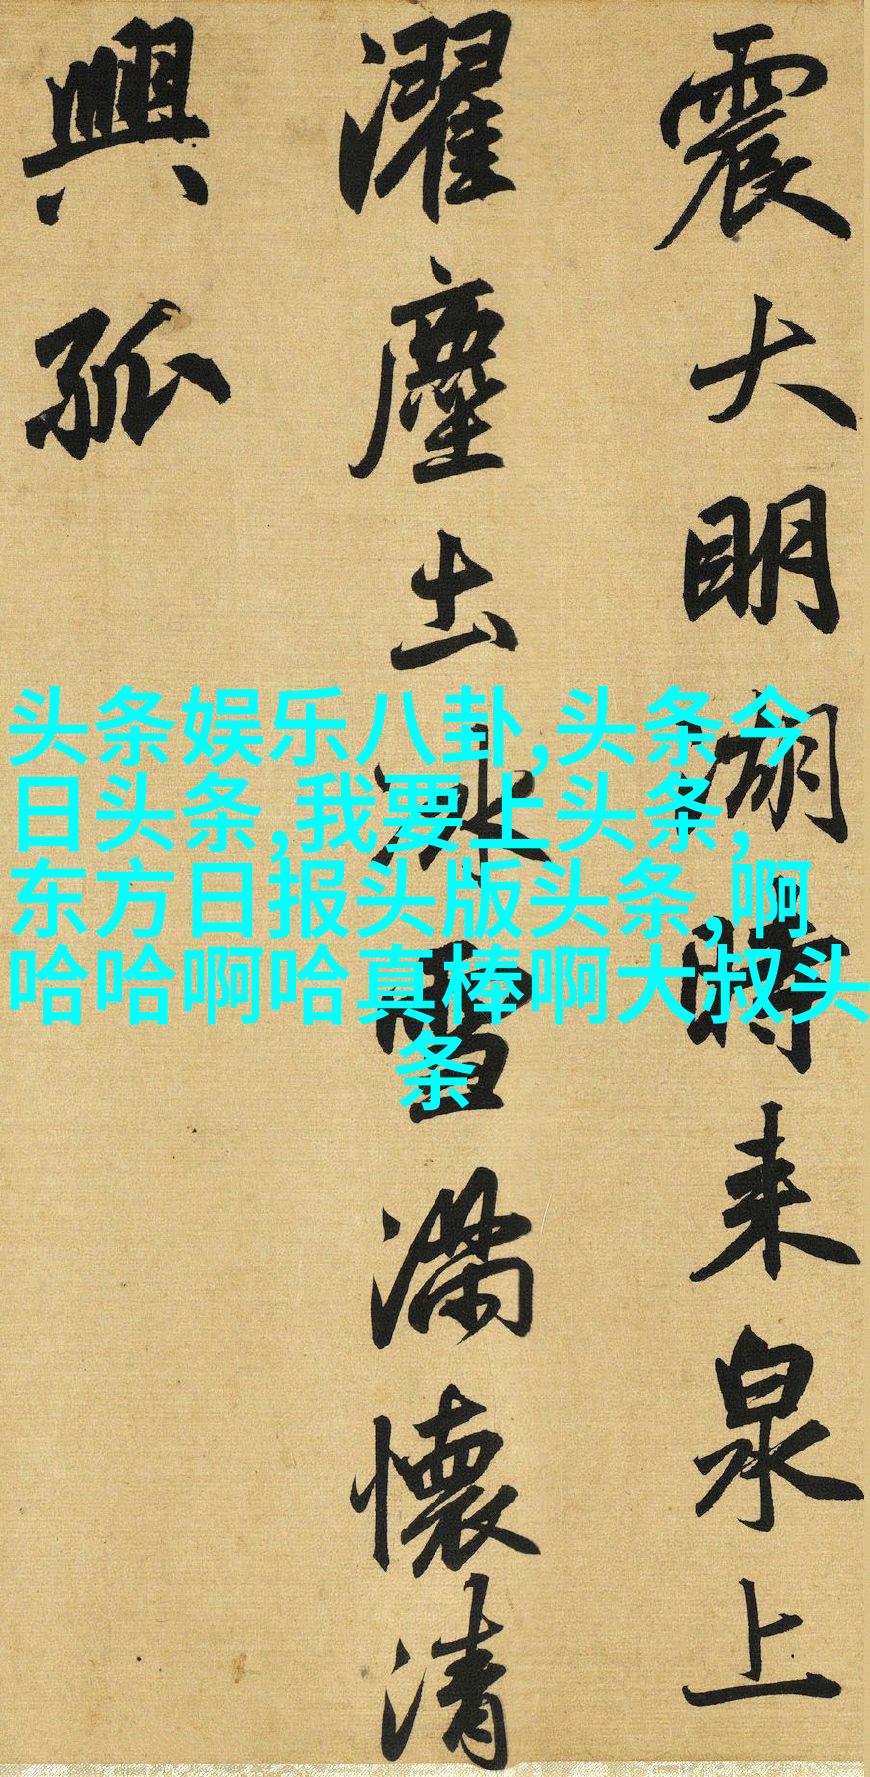 震大明湖時来泉上
濯塵土冰雪滿懷清
興孤
头条娱乐八卦,头条今
日头条,我要上头条,
东方日报头版头条,啊
哈哈啊哈真棒啊大叔头
条